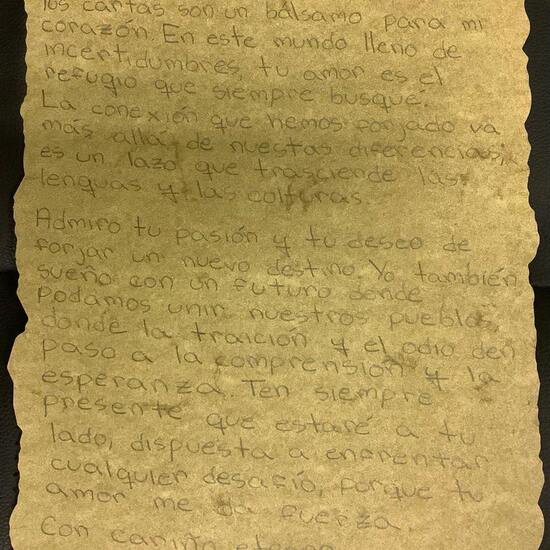 tus cartas son un bálsamo para mi
corazón. En este mundo lleno de
incertidumbres, tu amor es el
refugio que siempre busqué.
La conexión que hemos forjado va
más allá de nuestras diferencias;
es un lazo que trasciende las
lenguas y las colturas.
Admiro tu pasión y tu deseo de
forjar un nuevo destino. Yo también
sueño con un futuro donde
podamos unir nuestros pueblos,
donde la traición y el odio den
paso a la comprensión y la
esperanza. Ten siempre
presente que estaré a tu
lado, dispuesta a enfrentar
cualquier desafío, porque tu
amor me da fuerza.
Con cariño eterno